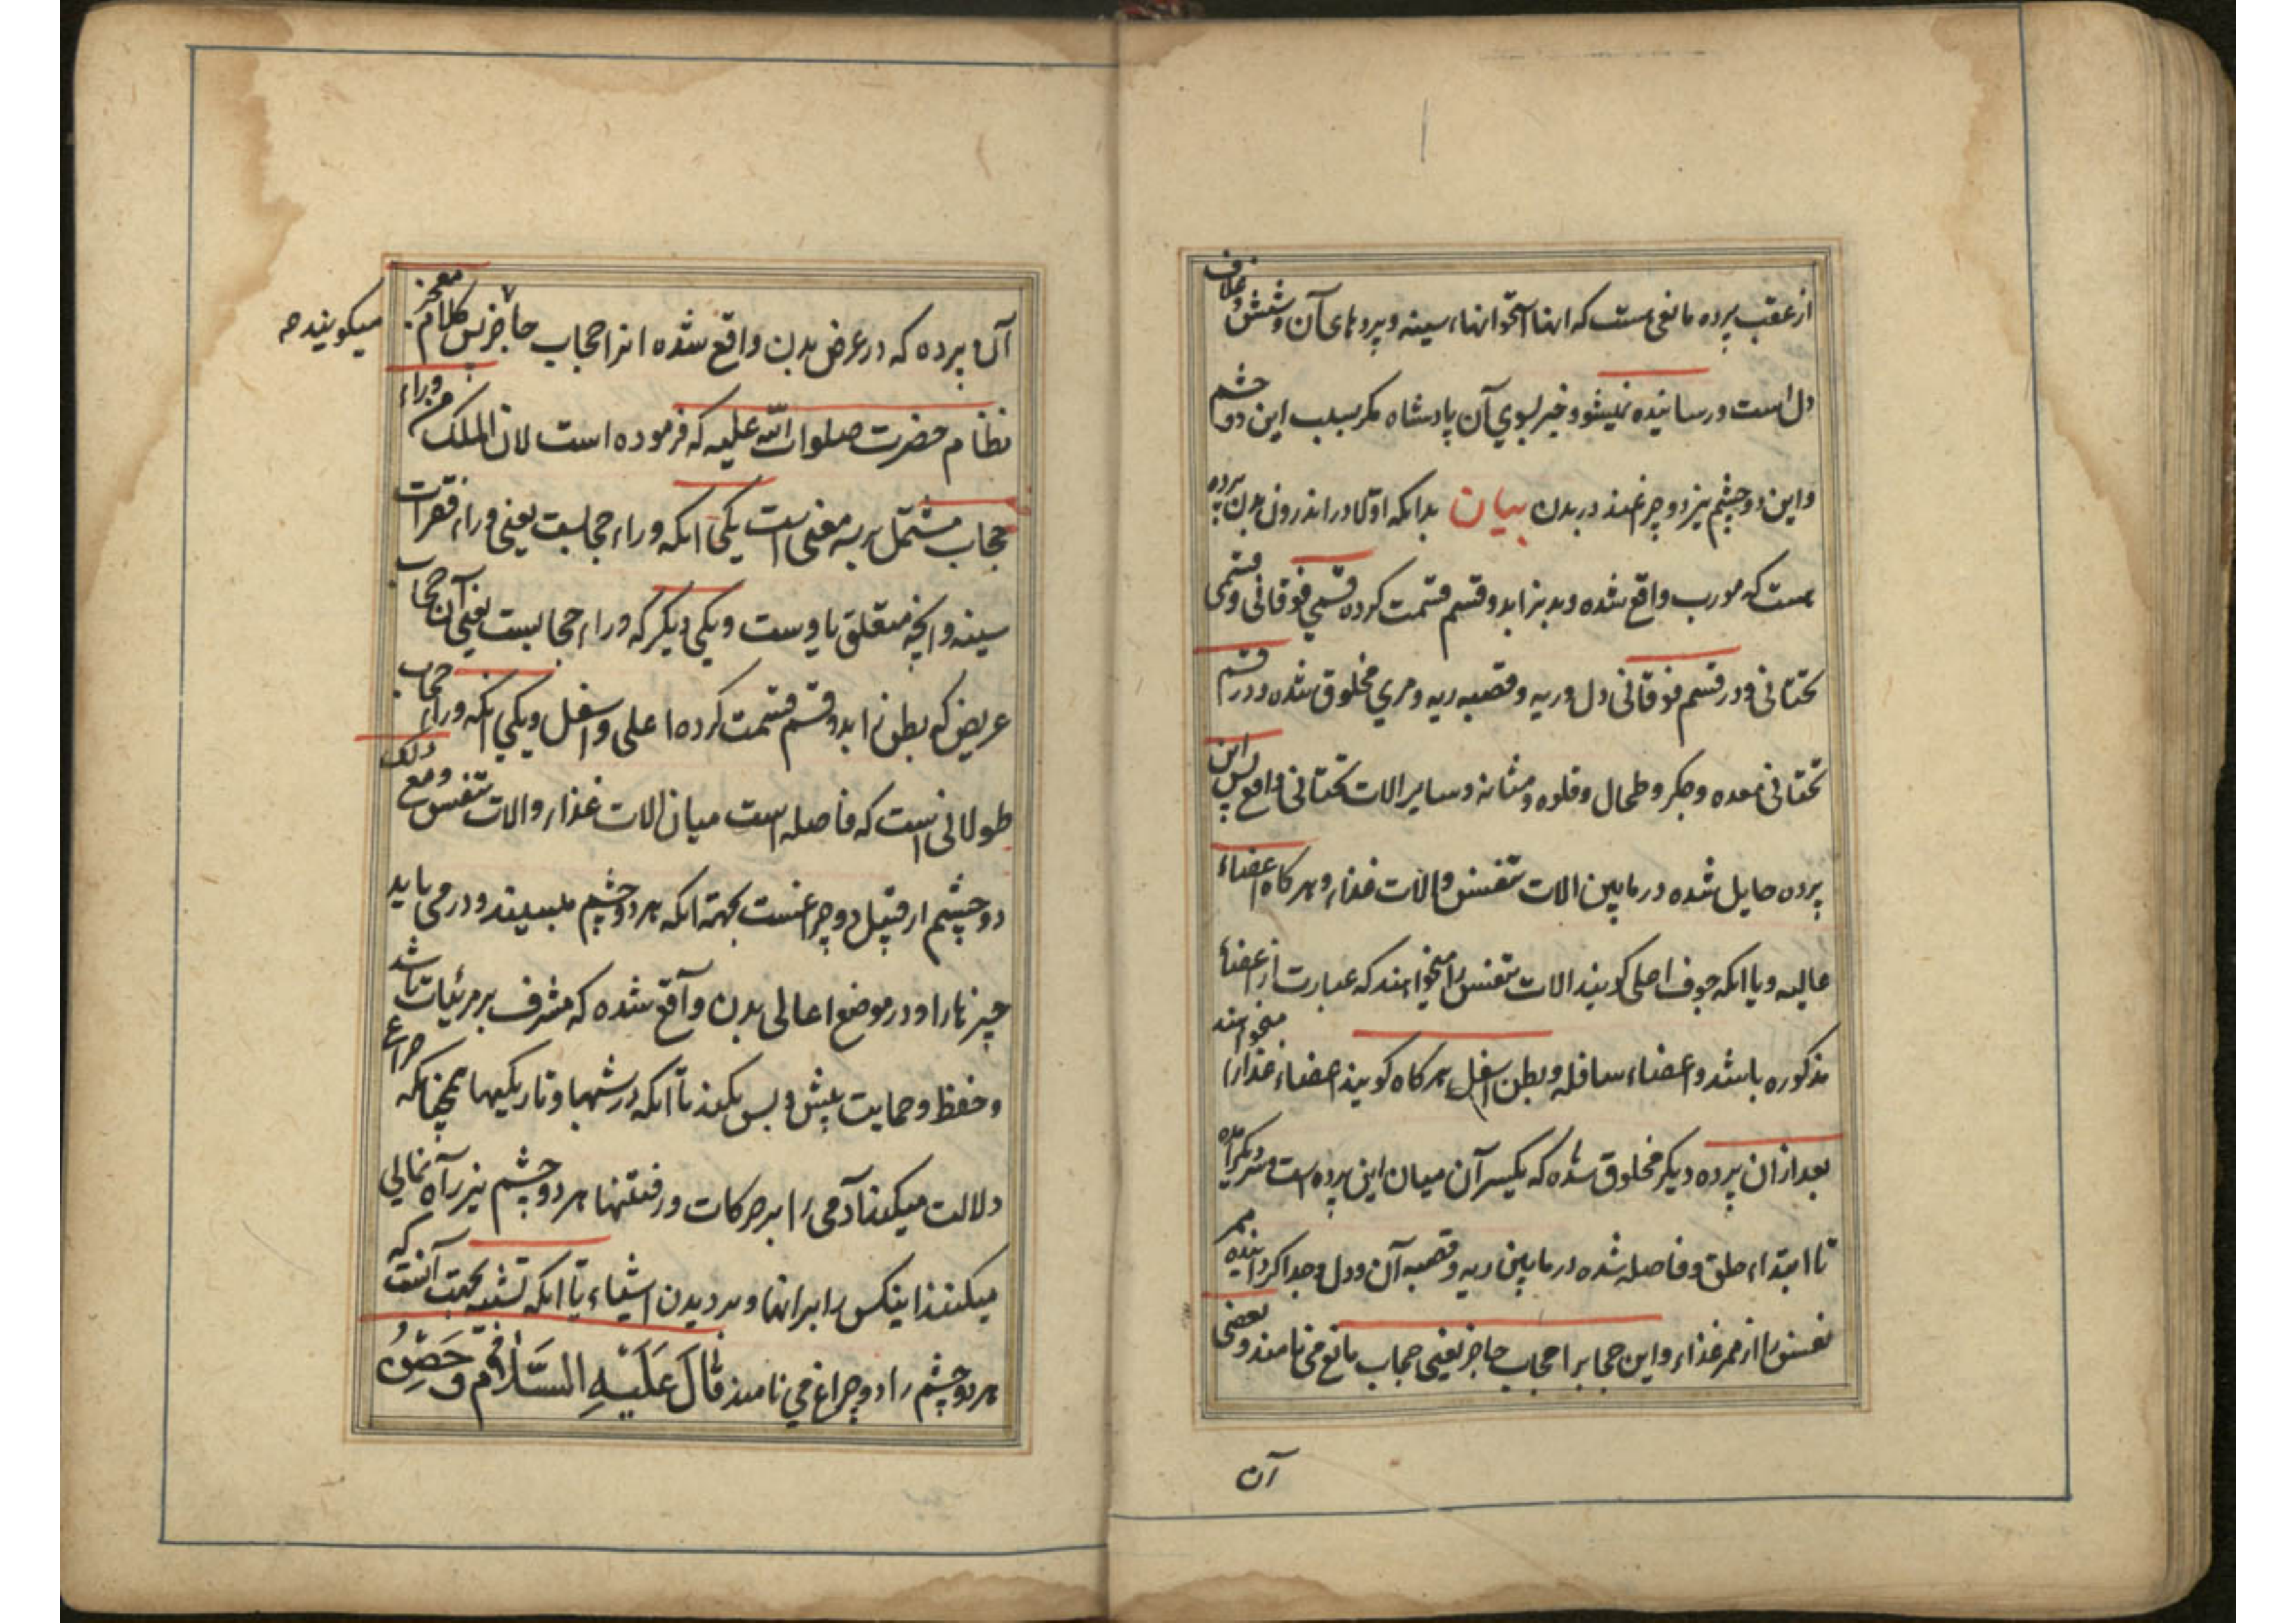 از عقب پرده مانعی هست که انها استخوانهاء سینه و پردهای آن و شش و غلاف
دل است و رسانیده نمیشود خبر بسوی آن پادشاه مکر بسبب این دو چشم
و این دو چشم نیز دو چرغند در بدن بیان بدانکه اولا در اندرون بدن پرده
هست که مورب واقع شده و بدنرا بدو قسم قسمت کرده قسمی فوقانی و قسمی
تحتانی و در قسم فوقانی دل و ریه و قصبه ریه و مری مخلوق شده و در قسم
تحتانی معده و جکر و طحال و قلوه و مثانه و سایر الات تحتانی واقع پس این
پرده حایل شده در مابین الات تنفس و الات غذاء و هر کاه اعضاء
عالیه و یا انکه جوف اعلی کویند الات تنفس را میخواهند که عبارت از اعضاء
مذکوره باشد و اعضاء سافله و بطن اسفل هر کاه کویند اعضاء غذا را میخواهند
بعد از ان پرده دیکر مخلوق شده که یکسر آن میان این پرده است و سر دیکر آمده
تا ابتداء حلق و فاصله شده در مابین ریه و قصبه آن و دل و جدا کرداینده ممر
نفس را از ممر غذاء و این حجابرا حجاب حاجز یعنی حجاب مانع می نامند و بعضی
آن
آن پرده که در عرض بدن واقع شده انرا حجاب حاجز پس کلام معجز
میکویند صه
نظام حضرت صلوات الله علیه که فرموده است لان الملک من وراء
حجاب مشتمل بر سه معنی است یکی انکه وراء حجابست یعنی وراء فقرات
سینه و انچه متعلق باوست و یکی دیکر که وراء حجابست یعنی آن حجاب
عریض که بطن را بدو قسم قسمت کرده اعلی و اسفل و یکی انکه وراء حجاب
طولانی است که فاصله است میان الات غذاء و الات تنفس و مع ذلک
دو چشم از قبیل دو چراغست بجهة انکه هر دو چشم میبینند و در می یابد
چیزها را و در موضع اعالی بدن واقع شده که مشرف بر مرئیات باشد
و حفظ و حمایت پیش و پس بکند تا انکه در شبها و تاریکیها همچنانکه چراغ
دلالت میکند آدمی را بر حرکات و رفتنها هر دو چشم نیز راه نمائی
میکنند اینکس را برانها و بر دیدن اشیاء تا انکه تشبیه بجهت آنست که
هر دو چشم را دو چراغ می نامند قَالَ عَلَیْهِ السَّلَام وَ حَصَّنَ